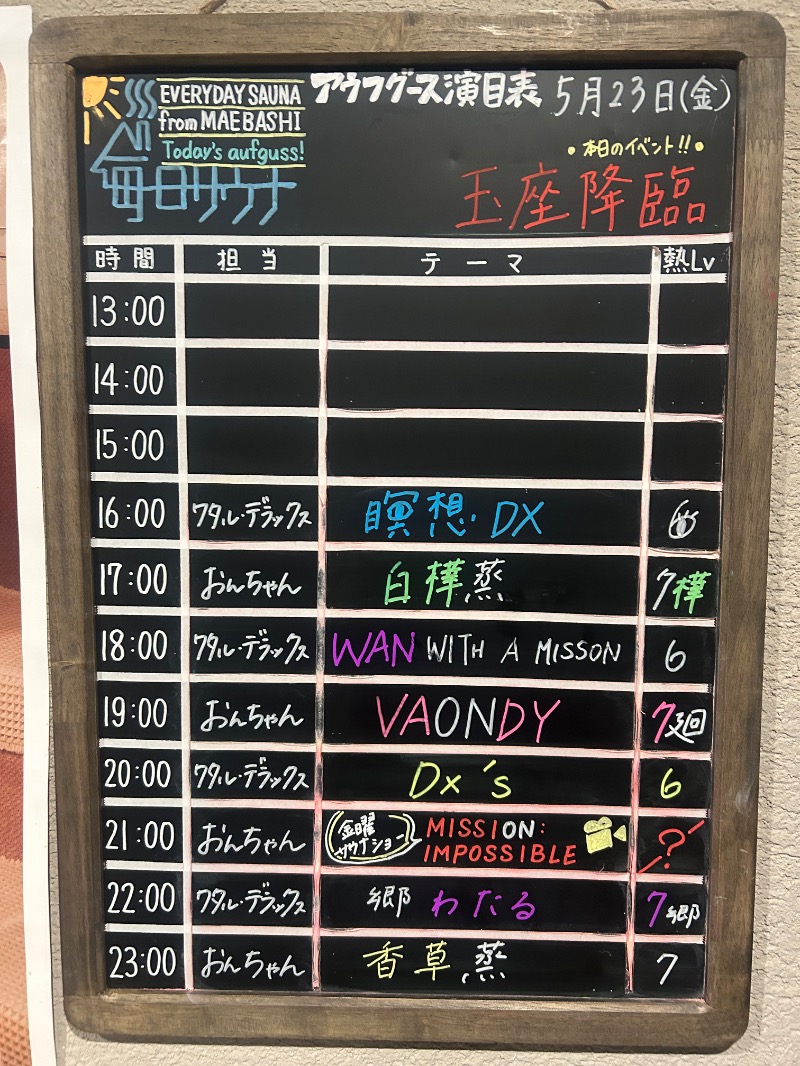 EVERYDAY SAUNA
from MAEBASHI
Today's aufguss!
毎日サウナ
アウフグース演目表 5月23日(金)
• 本日のイベント!! •
玉座降臨
時間 担当 テーマ 熱Lv
13:00
14:00
15:00
16:00 ワタル・デラックス 瞑想・DX 6
17:00 おんちゃん 白樺蒸 7樺
18:00 ワタル・デラックス WAN WITH A MISSON 6
19:00 おんちゃん VAONDY 7廻
20:00 ワタル・デラックス Dx's 6
21:00 おんちゃん 金曜サウナショー MISSION: IMPOSSIBLE ?
22:00 ワタル・デラックス 郷 わたる 7郷
23:00 おんちゃん 香草蒸 7